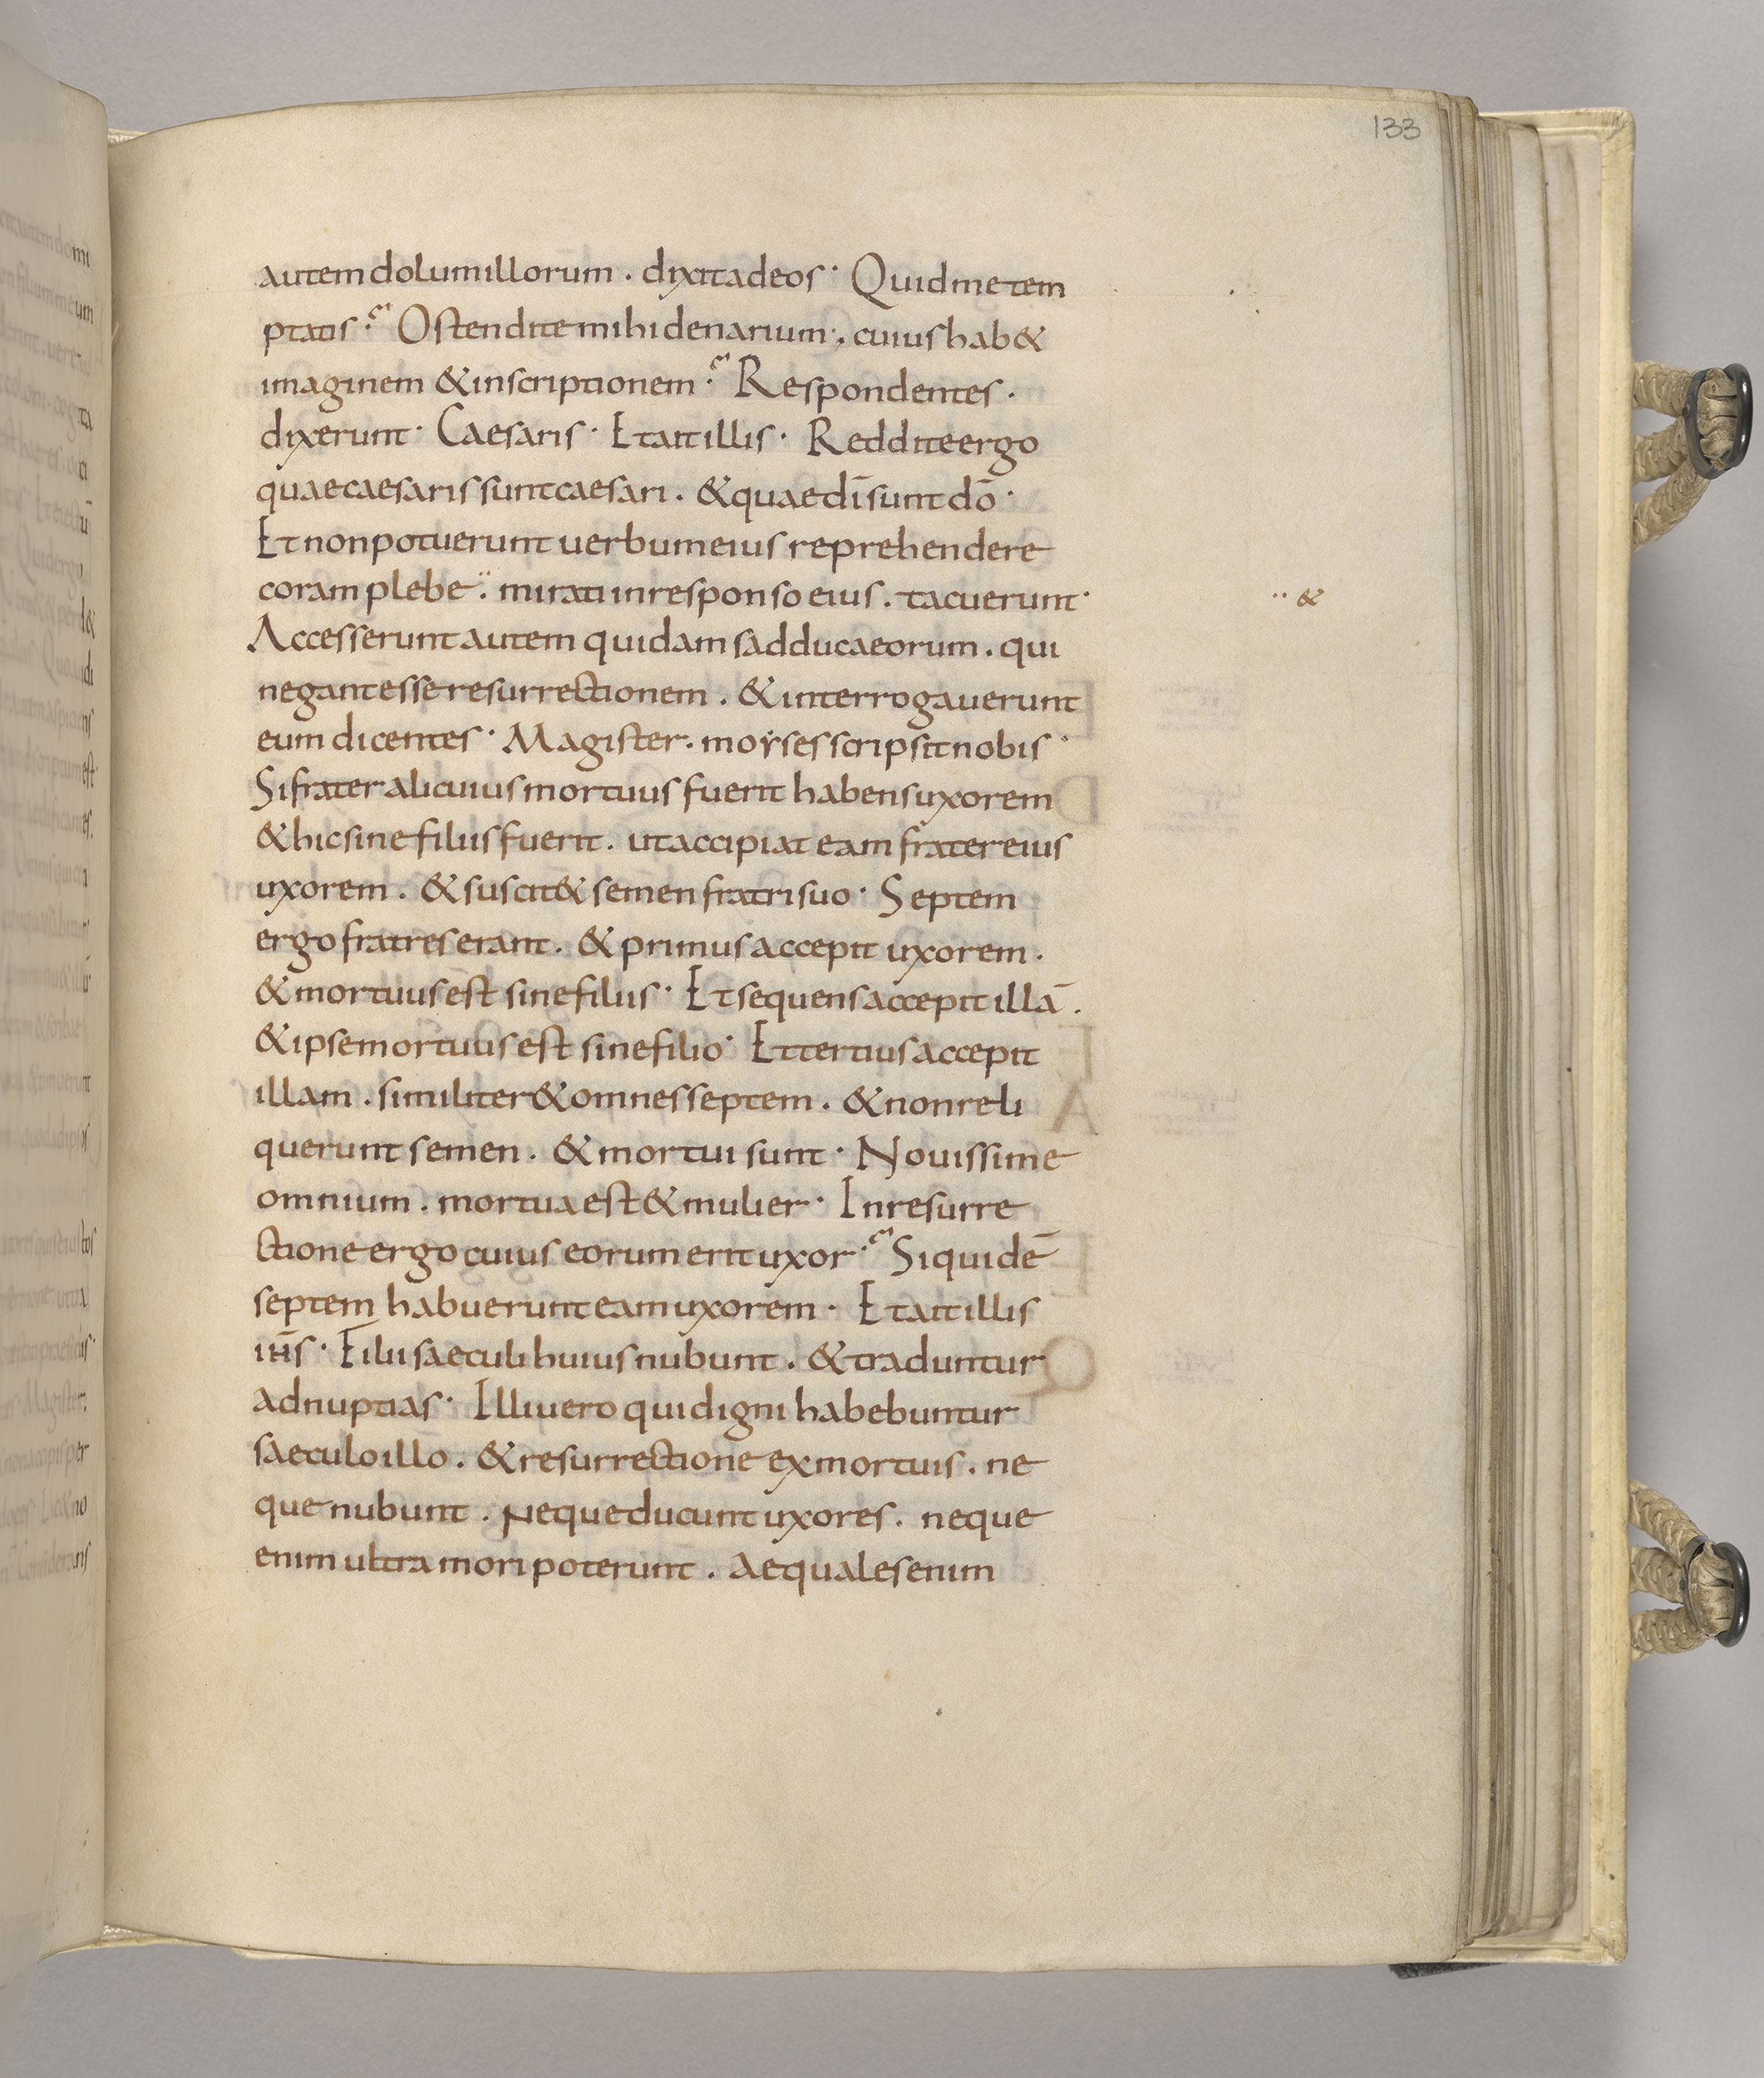 133
autem dolum illorum . dixit ad eos · Quid me tem
ptatis ? Ostendite mihi denarium ; cuius hab&
imaginem & inscriptionem ? Respondentes .
dixerunt · Caesaris · Et ait illis · Reddite ergo
quae caesaris sunt caesari . & quae dī sunt dō ·
Et non potuerunt uerbum eius reprehendere
coram plebe .¨ mirati in responso eius . tacuerunt · ·· &
Accesserunt autem quidam sadducaeorum . qui
negant esse resurrectionem . & interrogauerunt
eum dicentes · Magister . moẏses scripsit nobis ·
Si frater alicuius mortuus fuerit habens uxorem
& hic sine filiis fuerit . ut accipiat eam frater eius
uxorem . & suscit& semen fratri suo · Septem
ergo fratres erant . & primus accepit uxorem .
& mortuus est sine filiis · Et sequens accepit illā .
& ipse mortuus est sine filio · Et tertius accepit
illam . similiter & omnes septem . & non reli
querunt semen . & mortui sunt · Nouissime
omnium . mortua est & mulier · In resurre
ctione ergo cuius eorum erit uxor ? Siquidē
septem habuerunt eam uxorem · Et ait illis
ihs̄ · Filii saeculi huius nubunt . & traduntur
ad nuptias · Illi uero qui digni habebuntur
saeculo illo . & resurrectione ex mortuis . ne
que nubunt . Neque ducunt uxores . neque
enim ultra mori poterunt . Aequales enim